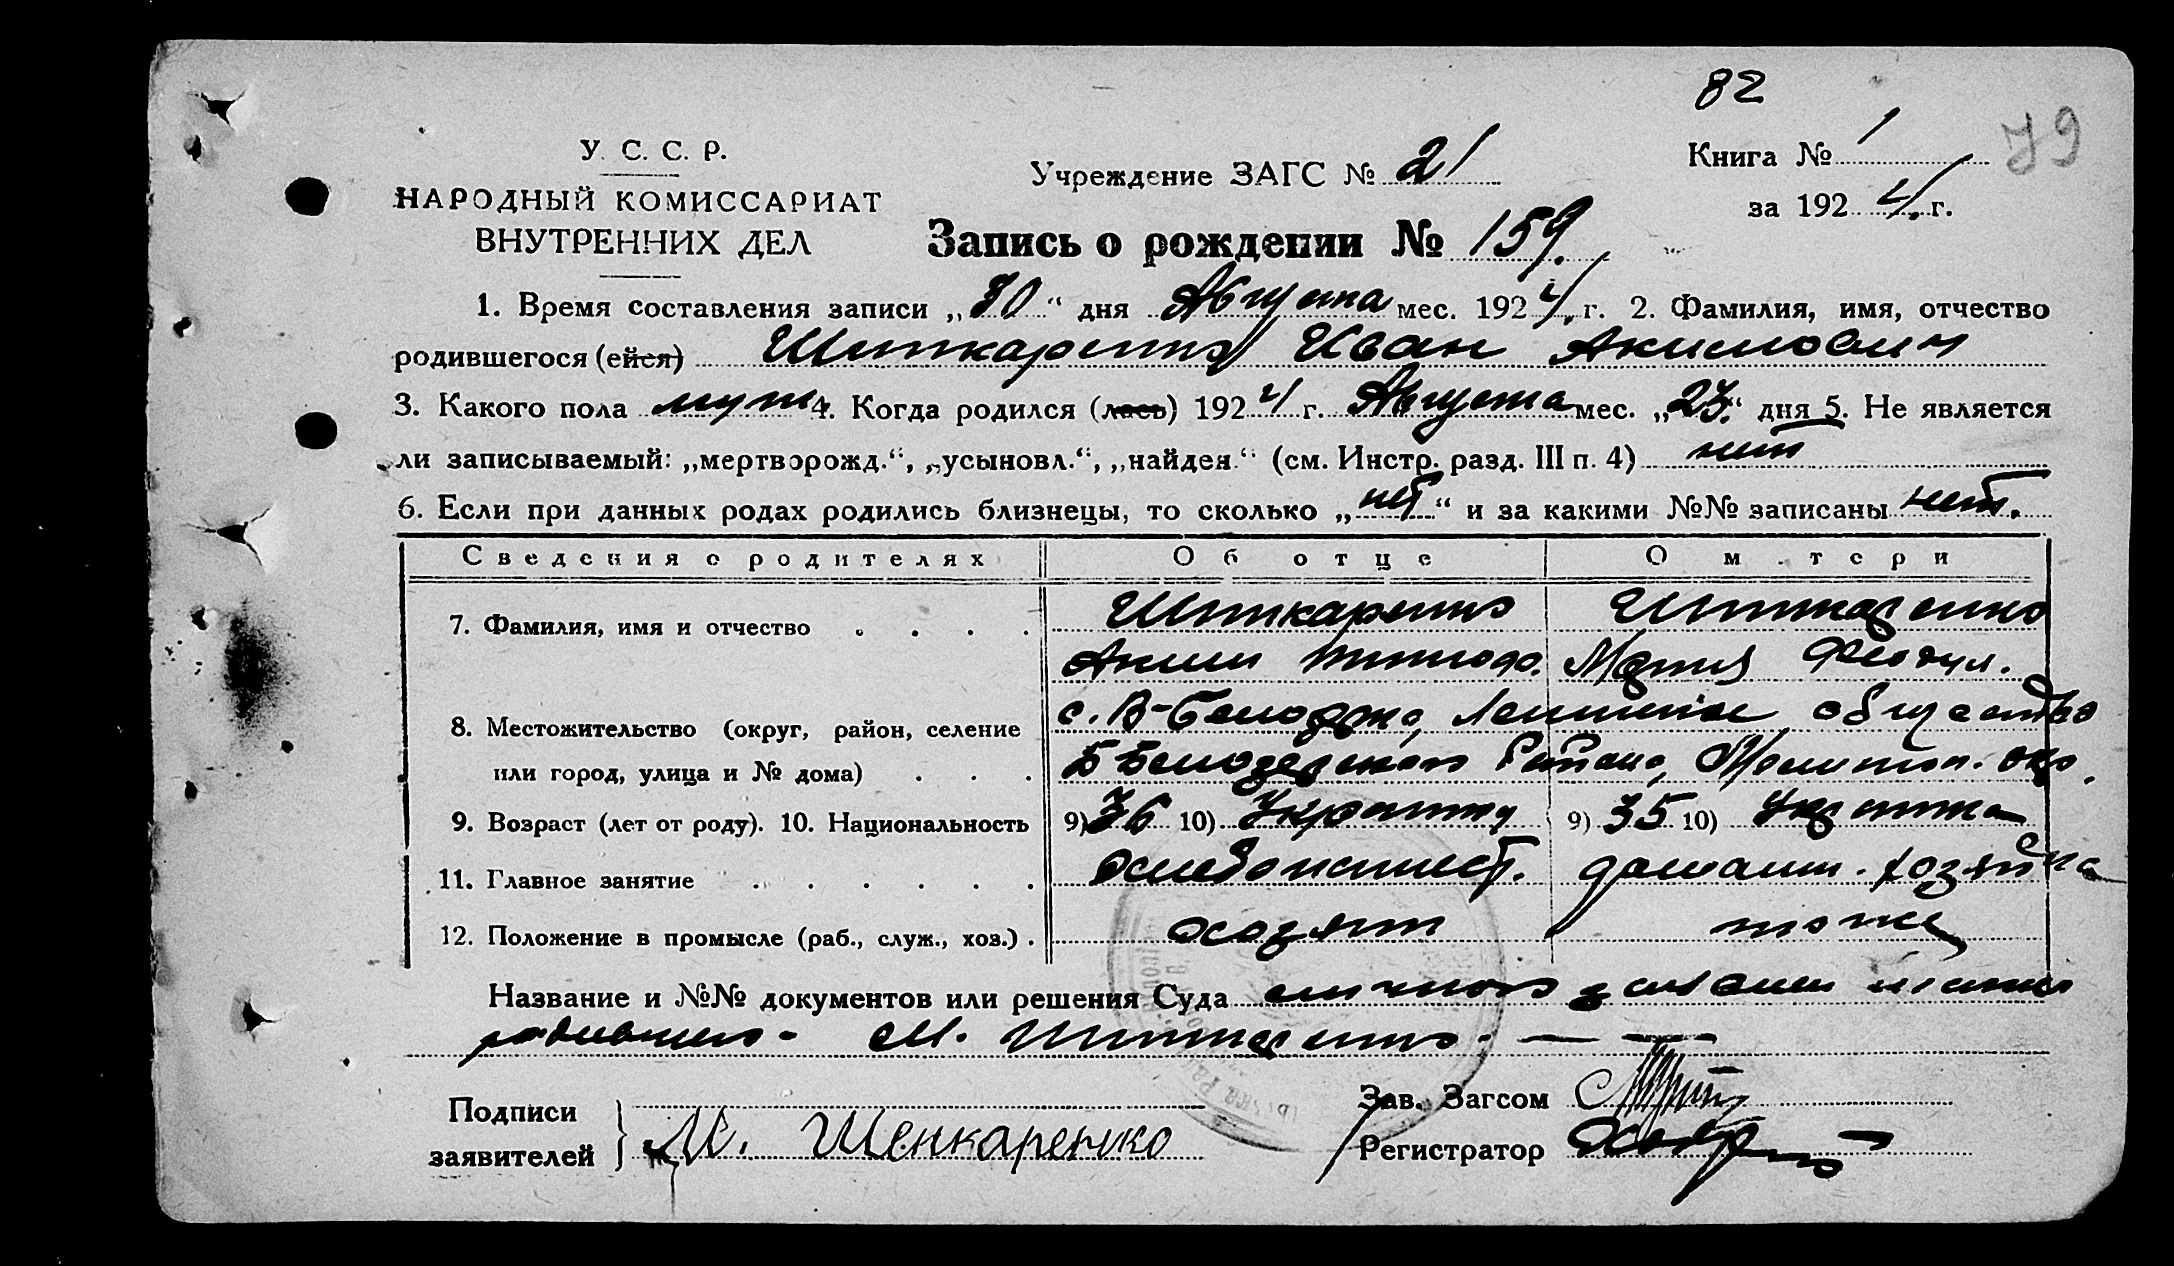 82
79
У. С. С. Р.
НАРОДНЫЙ КОМИССАРИАТ
ВНУТРЕННИХ ДЕЛ
Учреждение ЗАГС № 21
Книга № 1
за 1924 г.
Запись о рождении № 159.
1. Время составления записи „30“ дня Августа мес. 1924 г. 2. Фамилия, имя, отчество
родившегося (ейся) Шенкаренко Иван Акимович
3. Какого пола муж 4. Когда родился (лась) 1924 г. Августа мес. „23“ дня 5. Не является
ли записываемый: „мертворожд.“, „усыновл.“, „найден.“ (см. Инстр. разд. III п. 4) нет
6. Если при данных родах родились близнецы, то сколько „нет“ и за какими №№ записаны нет.
Сведения о родителях Об отце О м тери
7. Фамилия, имя и отчество Шенкаренко Шенкаренко
Аким Мария
8. Местожительство (округ, район, селение
или город, улица и № дома) Района,
9. Возраст (лет от роду). 10. Национальность 9) 36 10) 9) 35 10) Украинка
11. Главное занятие домашн. хозяйка
12. Положение в промысле (раб., служ., хоз.) хозяин тоже
Название и №№ документов или решения Суда личного
М. Шенкаренко
Подписи
заявителей М. Шенкаренко
Зав. Загсом
Регистратор